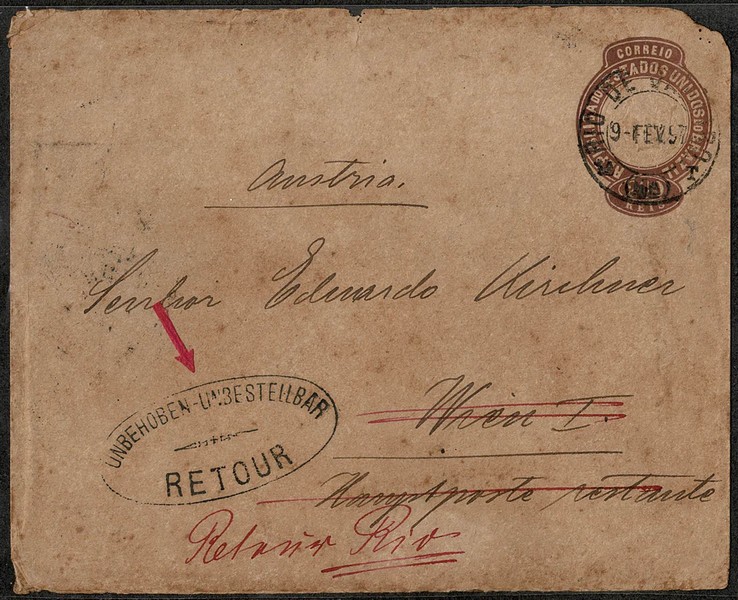 CORREIO
ESTADOS UNIDOS DO BRAZIL
REIS
RIO DE
9-FEV.97
Austria.
Senhor Eduardo Kirchner
Wien I.
Hauptposte restante
UNBEHOBEN-UNBESTELLBAR
RETOUR
Retour Rio